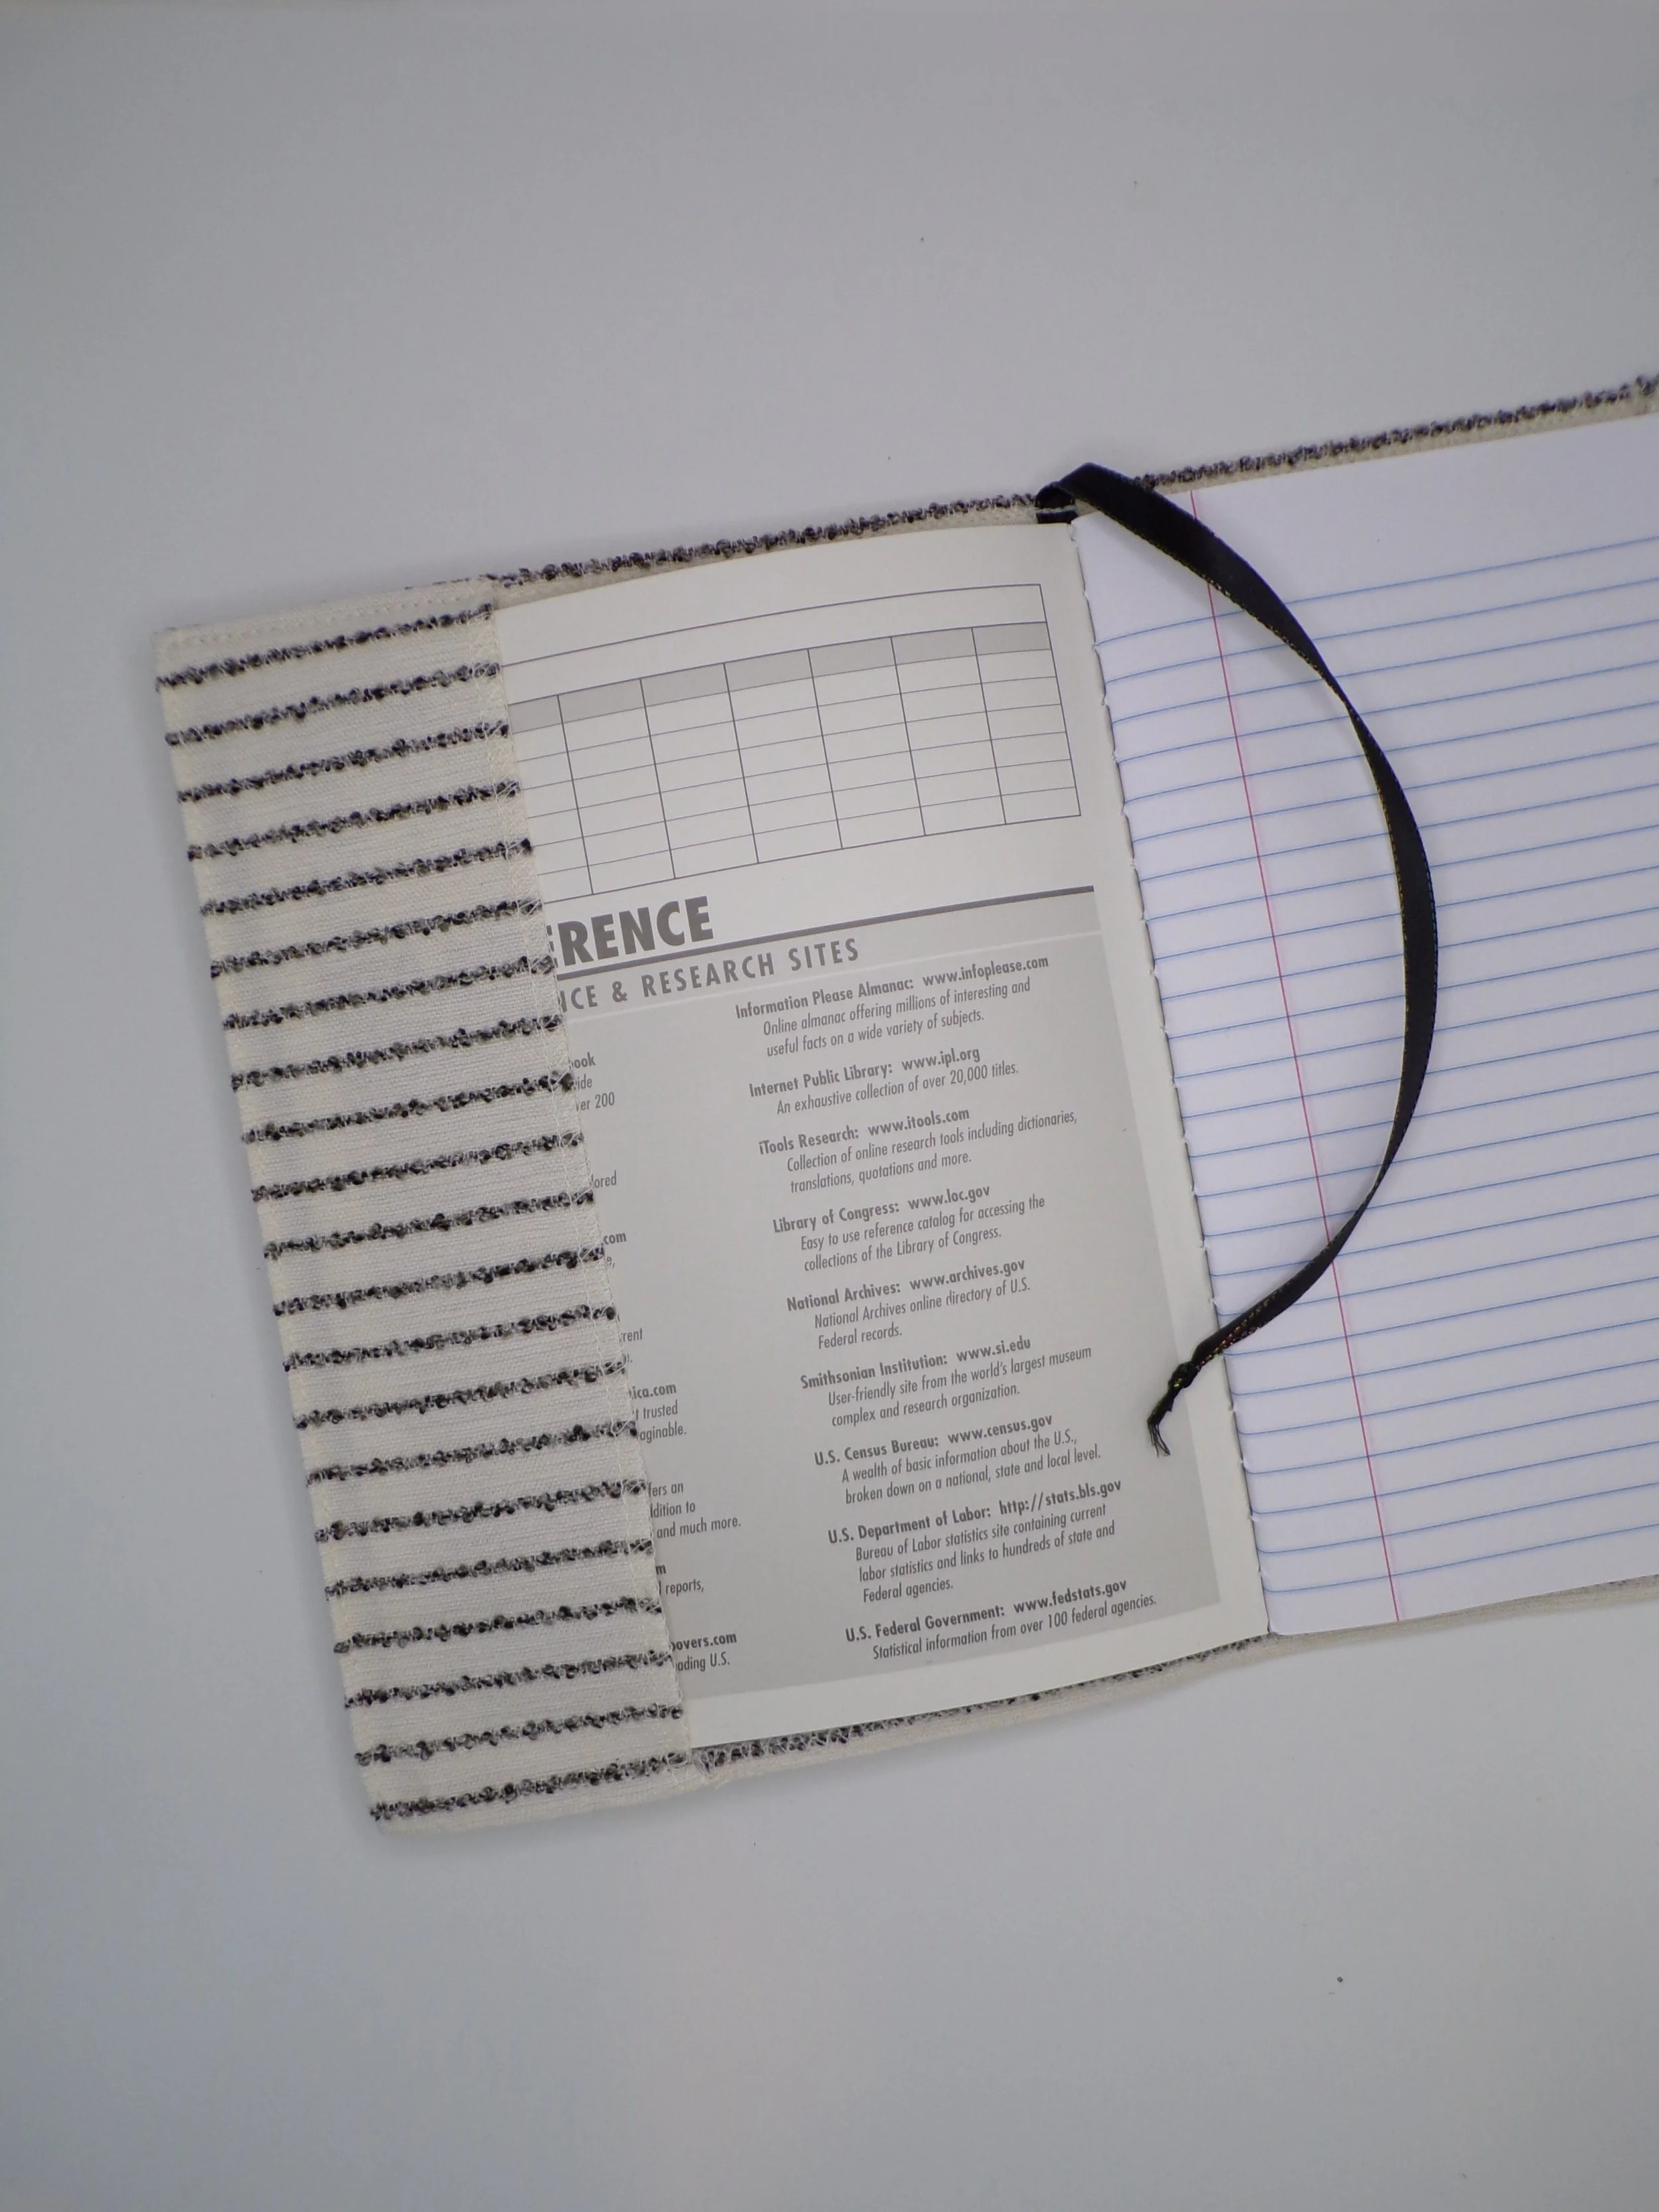 RENCE
& RESEARCH SITES
ook
ide
er 200
lored
.com
e,
rent
ica.com
t trusted
aginable.
fers an
dition to
and much more.
m
l reports,
overs.com
ading U.S.
Information Please Almanac: www.infoplease.com
Online almanac offering millions of interesting and
useful facts on a wide variety of subjects.
Internet Public Library: www.ipl.org
An exhaustive collection of over 20,000 titles.
iTools Research: www.itools.com
Collection of online research tools including dictionaries,
translations, quotations and more.
Library of Congress: www.loc.gov
Easy to use reference catalog for accessing the
collections of the Library of Congress.
National Archives: www.archives.gov
National Archives online directory of U.S.
Federal records.
Smithsonian Institution: www.si.edu
User-friendly site from the world's largest museum
complex and research organization.
U.S. Census Bureau: www.census.gov
A wealth of basic information about the U.S.,
broken down on a national, state and local level.
U.S. Department of Labor: http://stats.bls.gov
Bureau of Labor statistics site containing current
labor statistics and links to hundreds of state and
Federal agencies.
U.S. Federal Government: www.fedstats.gov
Statistical information from over 100 federal agencies.